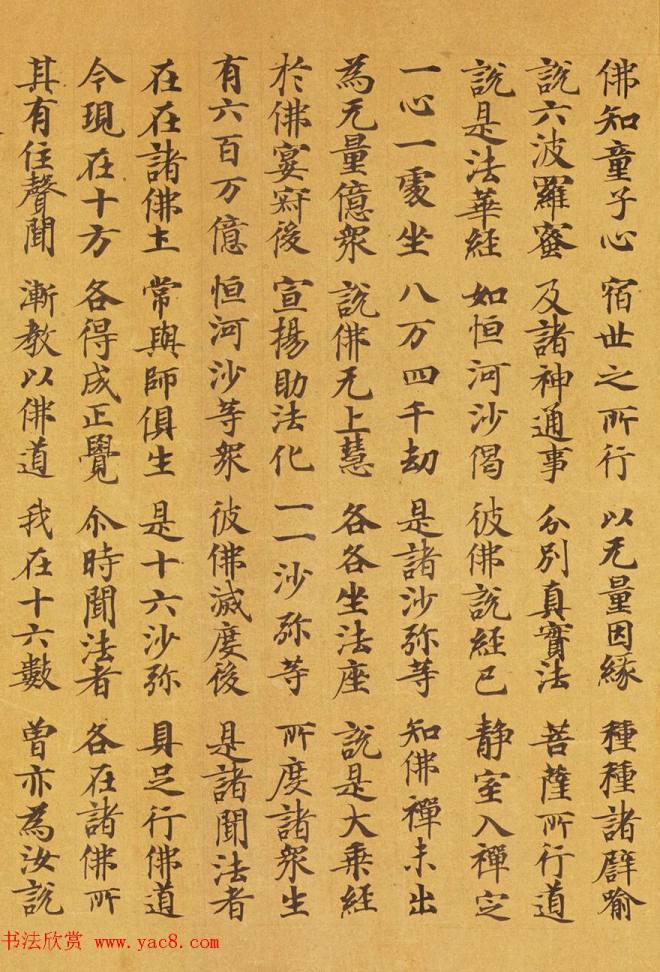 佛知童子心 宿世之所行 以无量因緣 種種諸譬喻
說六波羅蜜 及諸神通事 分別真實法 菩薩所行道
說是法華經 如恒河沙偈 彼佛說經已 靜室入禪定
一心一處坐 八万四千劫 是諸沙弥等 知佛禪未出
為无量億眾 說佛无上慧 各各坐法座 說是大乘經
於佛宴寂後 宣揚助法化 一一沙弥等 所度諸眾生
有六百万億 恒河沙等眾 彼佛滅度後 是諸聞法者
在在諸佛土 常與師俱生 是十六沙弥 具足行佛道
今現在十方 各得成正覺 尒時聞法者 各在諸佛所
其有住聲聞 漸教以佛道 我在十六數 曾亦為汝說
书法欣赏 www.yac8.com